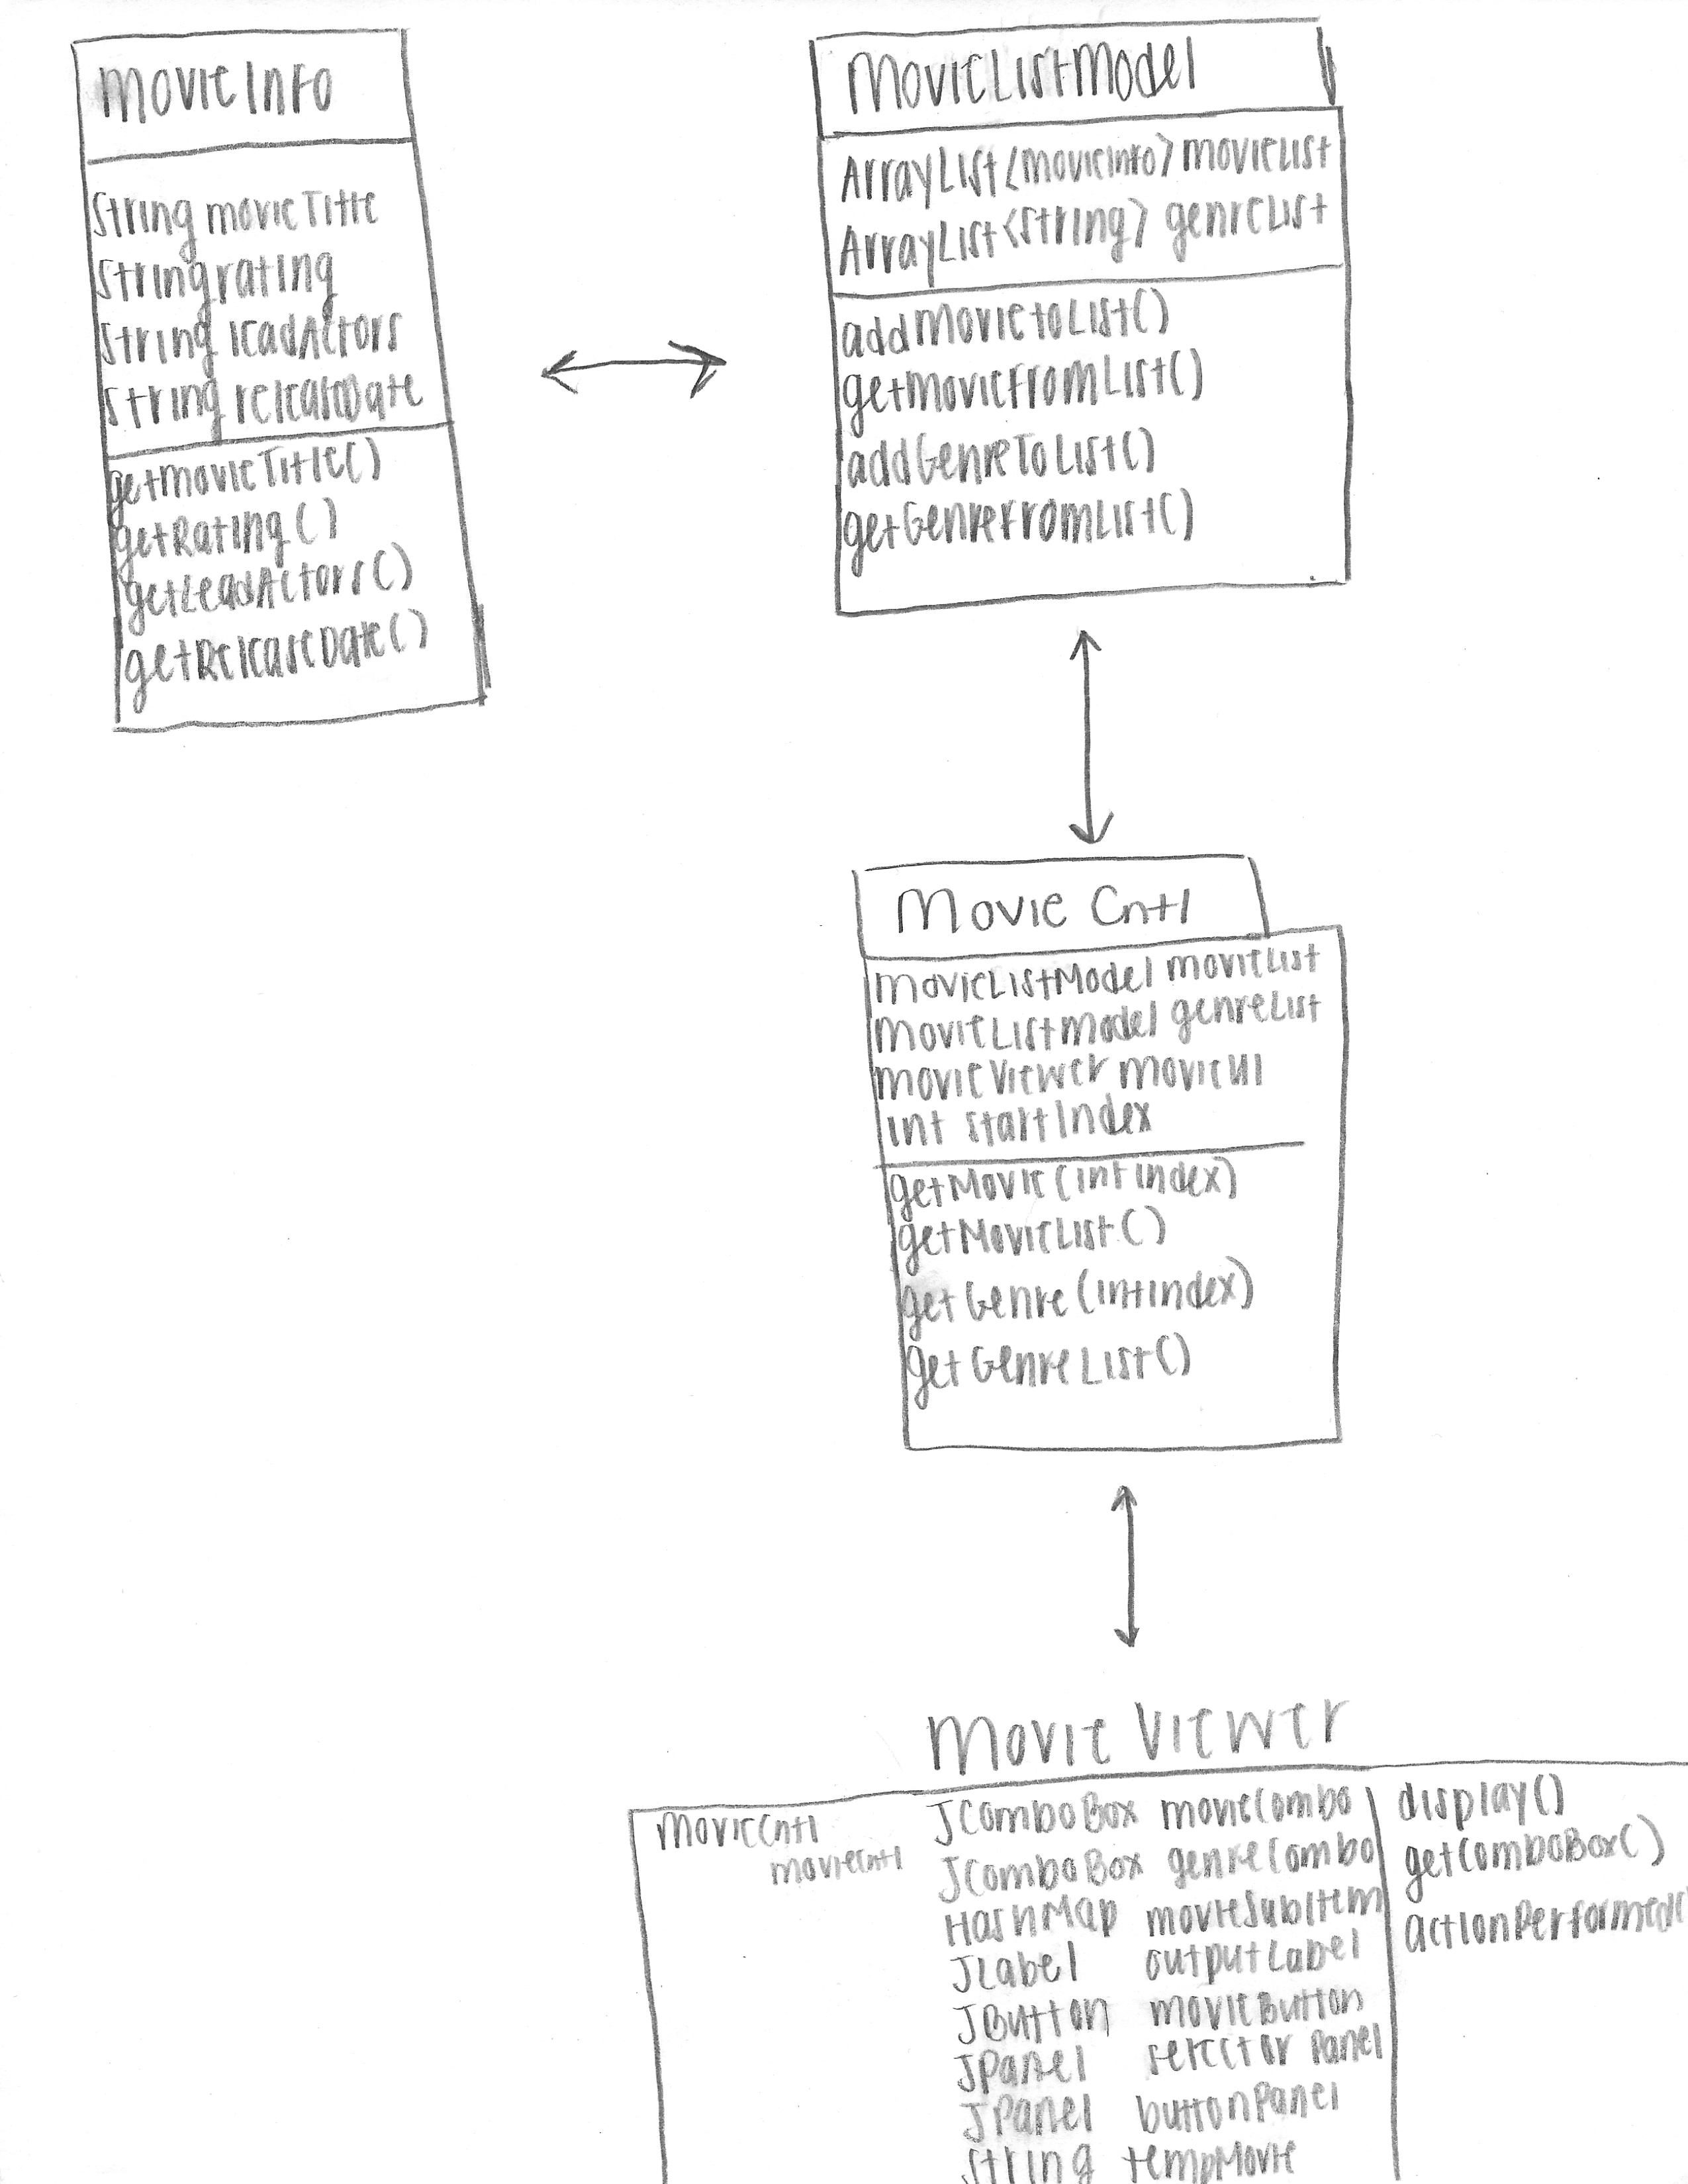 MovieInfo
String movieTitle
String rating
String leadActors
String releaseDate
getMovieTitle()
getRating()
getLeadActors()
getReleaseDate()
MovieListModel
ArrayList<MovieInfo> movieList
ArrayList<String> genreList
addMovieToList()
getMovieFromList()
addGenreToList()
getGenreFromList()
Movie Cntl
MovieListModel movieList
MovieListModel genreList
MovieViewer movieUI
int startIndex
getMovie(int index)
getMovieList()
getGenre(int index)
getGenreList()
Movie Viewer
MovieCntl
movieCntl
JComboBox movieCombo
JComboBox genreCombo
HashMap movieSubItem
JLabel outputLabel
JButton movieButton
JPanel selectorPanel
JPanel buttonPanel
String tempMovie
display()
getComboBox()
actionPerformed(